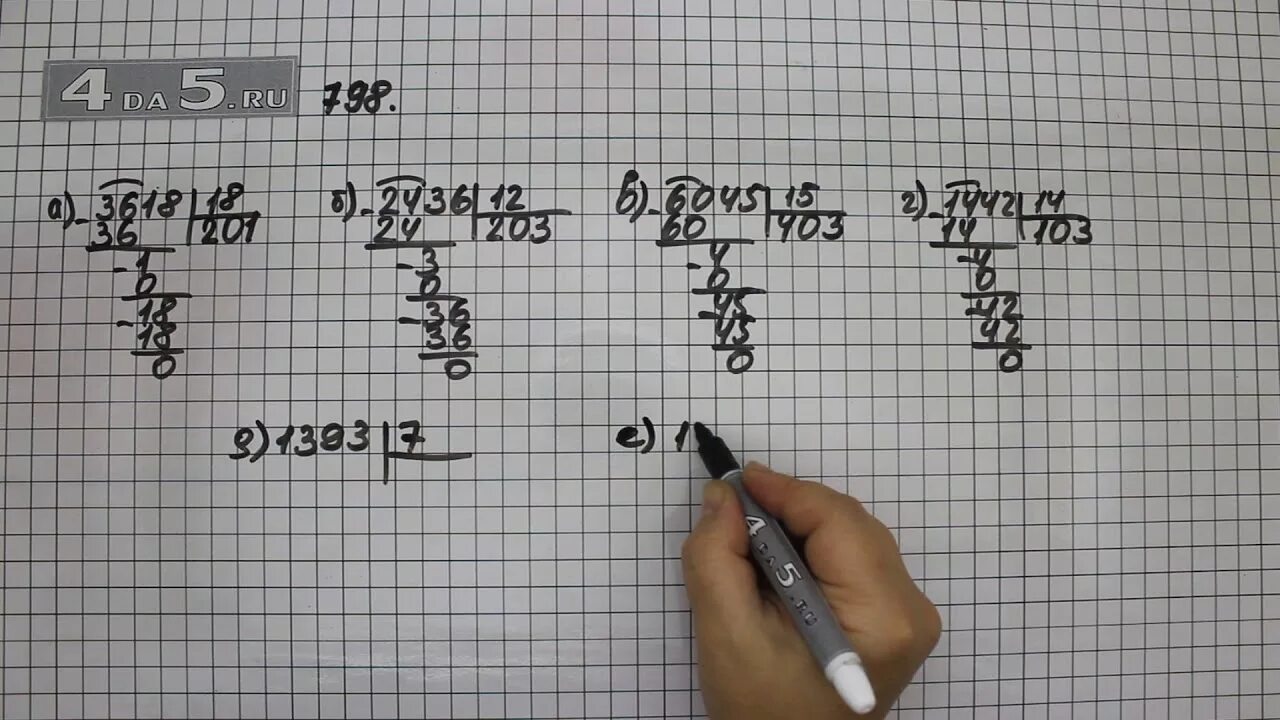 4 DA 5.RU 798.
а) 3618 18 б) 2436 12 в) 6045 15 г) 1442 14
- 36 201 - 24 203 - 60 403 - 14 103
- 1 - 3 - 4 - 4
0 0 0 0
- 18 - 36 - 45 - 42
18 36 45 42
0 0 0 0
д) 1393 7 е) 1
4 DA 5.RU